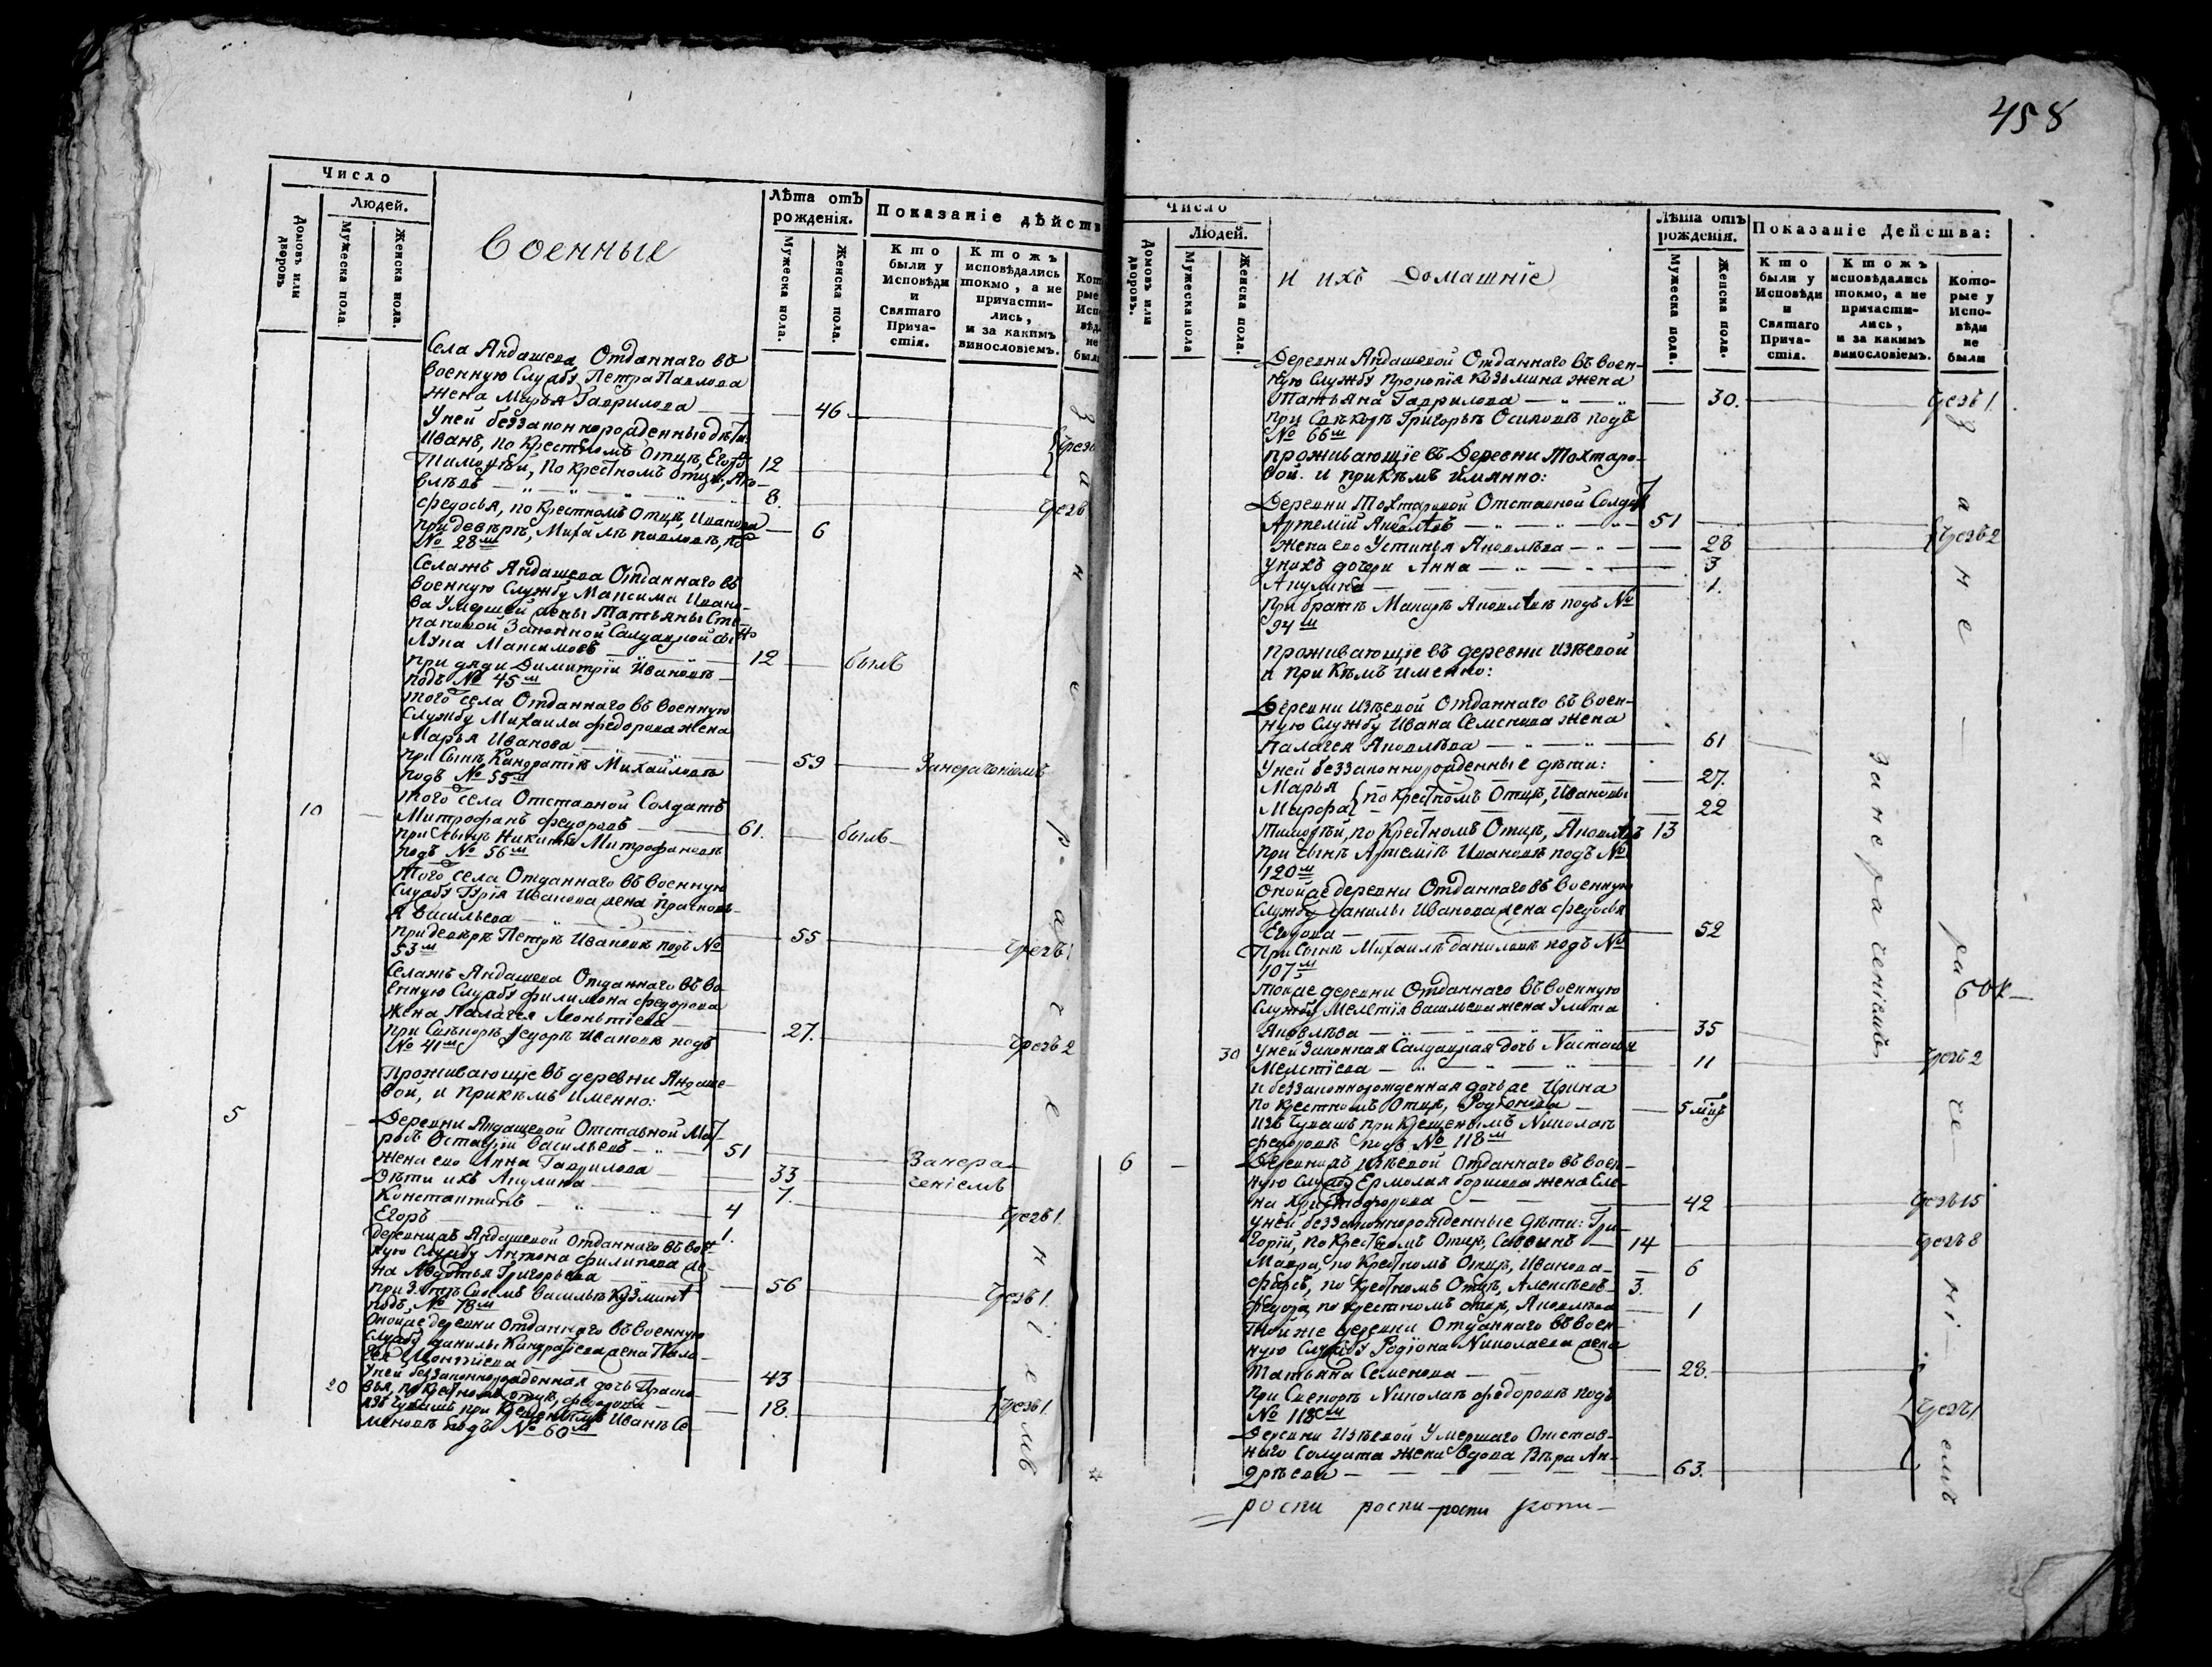 458
Число
Людей.
Домовъ или дворовъ
Мужеска пола
Женска пола.
Военные
Лѣта отъ рожденія.
Мужеска пола.
Женска пола.
Показаніе дѣйств
Кто были у Исповѣди и Святаго Прича-стія.
Ктожъ исповѣдались токмо, а не причасти-лись, и за какимъ винословіемъ.
Села Андашева Отданнаго въ
военную Службу Петра Павлова
жена Марья Гаврилова — 46
Уней беззаконнорожденные дѣти:
Иванъ, по Крестномъ Отцѣ, Егоровъ 12
Тимофѣй, По крестномъ отцѣ, Яко-
влевъ — 8.
Федосья, по Крестномъ Отцѣ, Иванова — 6
при деверѣ, Михайлѣ павловѣ, по
№ 28м
Селажъ Андашева Отданнаго въ
военную Службу Максима Ивано-
ва Умершей жены Татьяны Сте-
пановой Законной Салдацкой сынъ
Лука Максимовъ — 12 — былъ
при дяди Димитріи Ивановѣ —
подъ № 45м
того села Отданнаго въ военную
Службу Михаила федорова жена
Марья Иванова — 59 — Занераченіемъ
при Сынѣ Кандратіѣ Михайловѣ
подъ № 55м
10 того села Отставной Солдатъ
Митрофанъ федоровъ — 61. — былъ
при Сынѣ Никитѣ Митрофановѣ
подъ № 56м
Того села Отданнаго въ военную
Службу Гурія Иванова жена Прасковь-
я Васильева — 55 — Чрезъ 1
при деверѣ Петрѣ Ивановѣ подъ №
53м
Селажъ Андашева Отданнаго въ во-
енную Службу филимона федорова
жена Палагея Леонтіева — 27. — Чрезъ 2
при Свекорѣ федорѣ Ивановѣ подъ
№ 41м
Проживающіе въ деревни Андаше-
вой, и прикѣмъ Именно:
5 Деревни Андашевой Отставной Мат-
росъ Остафій Васильевъ — 51 Занера-
жена его Анна Гаврилова — 33 ченіемъ
Дѣти ихъ Акулина — 7.
Константинъ — 4 Чрезъ 1
Егоръ — 1.
деревнижъ Андашевой Отданнаго въ воен-
ную Службу Антона филипова же-
на Авдотья Григорьева — 56 — Чрезъ 1
при Зятѣ Своемъ Васильѣ Кузминѣ
подъ, № 78м
Онойже деревни Отданнаго въ военную
Службу данилы Кандратіева жена Пала-
гея Леонтіева — 43
Уней беззаконнорожденная дочь Праско-
20 вья, по крестномъ отцѣ, федорова — 18. Чрезъ 1
изъ Чувашъ при крещенымъ Иванѣ Се-
меновѣ подъ № 60м
Число
Людей.
Домовъ или дворовъ.
Мужеска пола
Женска пола.
и ихъ Домашніе
Лѣта отъ рожденія.
Мужеска пола.
Женска пола.
Показаніе Дѣйства:
Кто были у Исповѣди и Святаго Прича-стія.
Ктожъ исповѣдались токмо, а не причасти-лись, и за какимъ винословіемъ.
Кото-рые у Испо-вѣди не были
Деревни Андашевой Отданнаго въ воен-
ную Службу Прокопія Козьмина жена
Татьяна Гаврилова — 30. Чрезъ 1
при Свекорѣ Григорьѣ Осиповѣ подъ
№ 66м
проживающіе въ Деревни Тохтаро-
вой. и прикѣмъ имянно:
Деревни Тохтаровой Отставной Солдатъ
Артемій Яковлевъ — 51
жена его Устинья Яковлева — 28 Чрезъ 2
унихъ дочери Анна — 3
Акулина — 1.
при братѣ Макарѣ Яковлевѣ подъ №
94м
проживающіе въ деревни Изѣевой
и при Кѣмъ именно:
Деревни Изѣевой Отданнаго въ воен-
ную Службу Ивана Семенова жена
Палагея Яковлева — 61
Уней беззаконнорожденные дѣти:
Марья по Крестномъ Отцѣ, Ивановы 27.
Марфа — 22
Тимофѣй, по Крестномъ Отцѣ, Яковлевъ 13
при сынѣ Артеміѣ Ивановѣ подъ №
120м
онойже деревни Отданнаго въ военную
Службу данилы Иванова жена федосья
Егорова — 52
При Сынѣ Михаилѣ даниловѣ подъ №
107м
тоеже деревни Отданнаго въ военную
Службу Мелетія Васильева жена Улита
Яковлева — 35
30 уней Законная Салдацкая дочь Настасья
Мелетіева — 11 Чрезъ 2
и беззаконнорожденная дочьже Ирина
по крестномъ Отцѣ, Родіонова — 5 мцъ
изъ Чувашъ при крещенымъ Николаѣ
федоровѣ подъ № 118м
6 Деревнижъ Изѣевой Отданнаго въ воен-
ную Службу Ермолая борисова жена Еле-
на Христофорова — 42 Чрезъ 15
уней беззаконнорожденные дѣти: Гри-
горій, по Крестномъ Отцѣ, Саввинъ — 14 Чрезъ 8
Мавра, по Крестномъ Отцѣ, Иванова — 6
по крестномъ Отцѣ, Алексѣевъ 3.
по крестномъ отцѣ, Яковлева — 1
Тойже деревни Отданнаго въ воен-
ную Службу Родіона Николаева жена
Татьяна Семенова — 28.
при Свекорѣ Николаѣ федоровѣ подъ
№ 118м Чрезъ 1
Деревни Изѣевой Умершаго Отстав-
наго Солдата жена вдова Вѣра Ан-
дрѣева — 63.
занераченіемъ
за нераченіемъ
роспи роспи роспи